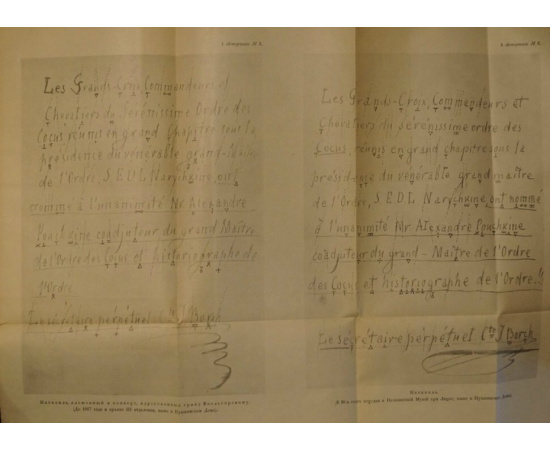 Les Grands-Croix Commandeurs et
Chevaliers du Sérénissime Ordre des
Cocus réunis en grand Chapitre sous la
présidence du vénérable grand-Maître
de l'Ordre, S.E.D.L. Narychkine, ont
nommé à l'unanimité Mr Alexandre
Pouchkine coadjuteur du grand Maître
de l'Ordre des Cocus et historiographe de
l'Ordre.
Le sécrétaire perpétuel Cte J. Borch
(До 1917 года в архиве III отделения, ныне в Пушкинском Доме).
Les Grands-Croix, Commandeurs et
Chevaliers du sérénissime ordre des
Cocus, réunis en grand chapitre sous la
présidence du vénérable grand maître
de l'Ordre, S.E.D.L. Narychkine ont nommé
à l'unanimité Mr Alexandre Pouchkine
coadjuteur du grand-Maître de l'Ordre
des Cocus et historiographe de l'Ordre.
Le sécrétaire perpétuel Cte J. Borch